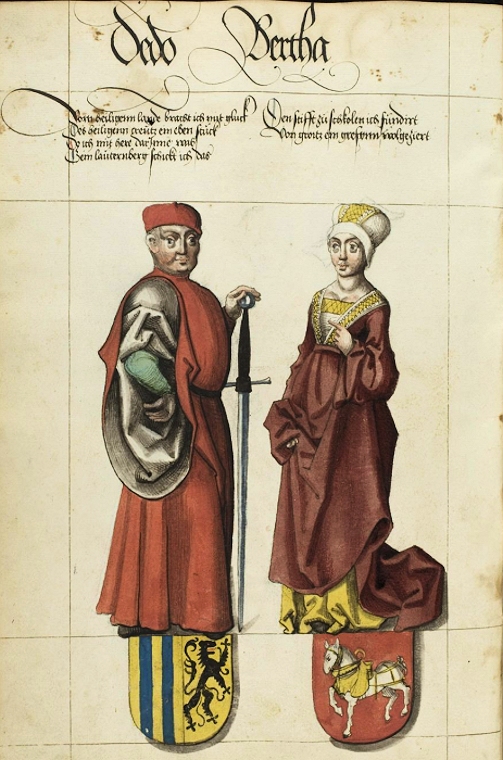 Dedo Bertha
Vom heiligenn lande brachte ich mit gluck
Des heiligenn creutz ein eben stuck
Do ich mit here dar Inne was
Gein lauternberg schickt ich das
Den stifft zu schkolen ich fundirt
Von groitz ein grefynn wolgeziert